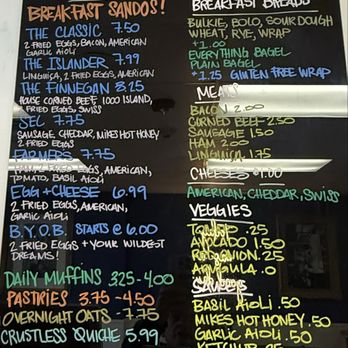 BREAKFAST SANDOS!
THE CLASSIC 7.50
2 FRIED EGGS, BACON, AMERICAN
GARLIC AIOLI
THE ISLANDER 7.99
LINGUICA, 2 FRIED EGGS, AMERICAN
THE FINNEGAN 8.25
HOUSE CORNED BEEF, 1000 ISLAND,
2 FRIED EGGS, SWISS
SEC 7.75
SAUSAGE, CHEDDAR, MIKES HOT HONEY
2 FRIED EGGS,
FARMERS 7.75
HAM, 2 FRIED EGGS, AMERICAN,
TOMATO, BASIL AIOLI
EGG + CHEESE 6.99
2 FRIED EGGS, AMERICAN,
GARLIC AIOLI
B.Y.O.B. STARTS @ 6.00
2 FRIED EGGS + YOUR WILDEST
DREAMS!
DAILY MUFFINS 3.25-4.00
PASTRIES 3.75-4.50
OVERNIGHT OATS - 7.75
CRUSTLESS QUICHE 5.99
BREAKFAST BREADS
BULKIE, BOLO, SOURDOUGH
WHEAT, RYE, WRAP
+1.00
EVERYTHING BAGEL
PLAIN BAGEL
*1.25 GLUTEN FREE WRAP
MEATS
BACON 2.00
CORNED BEEF - 2.50
SAUSAGE 1.50
HAM 2.00
LINGUICA 1.75
CHEESES $1.00
AMERICAN, CHEDDAR, SWISS
VEGGIES
TOMATO .25
AVOCADO 1.50
RED ONION .25
ARUGULA .50
SAUCES
BASIL AIOLI .50
MIKES HOT HONEY .50
GARLIC AIOLI .50
KETCHUP .25